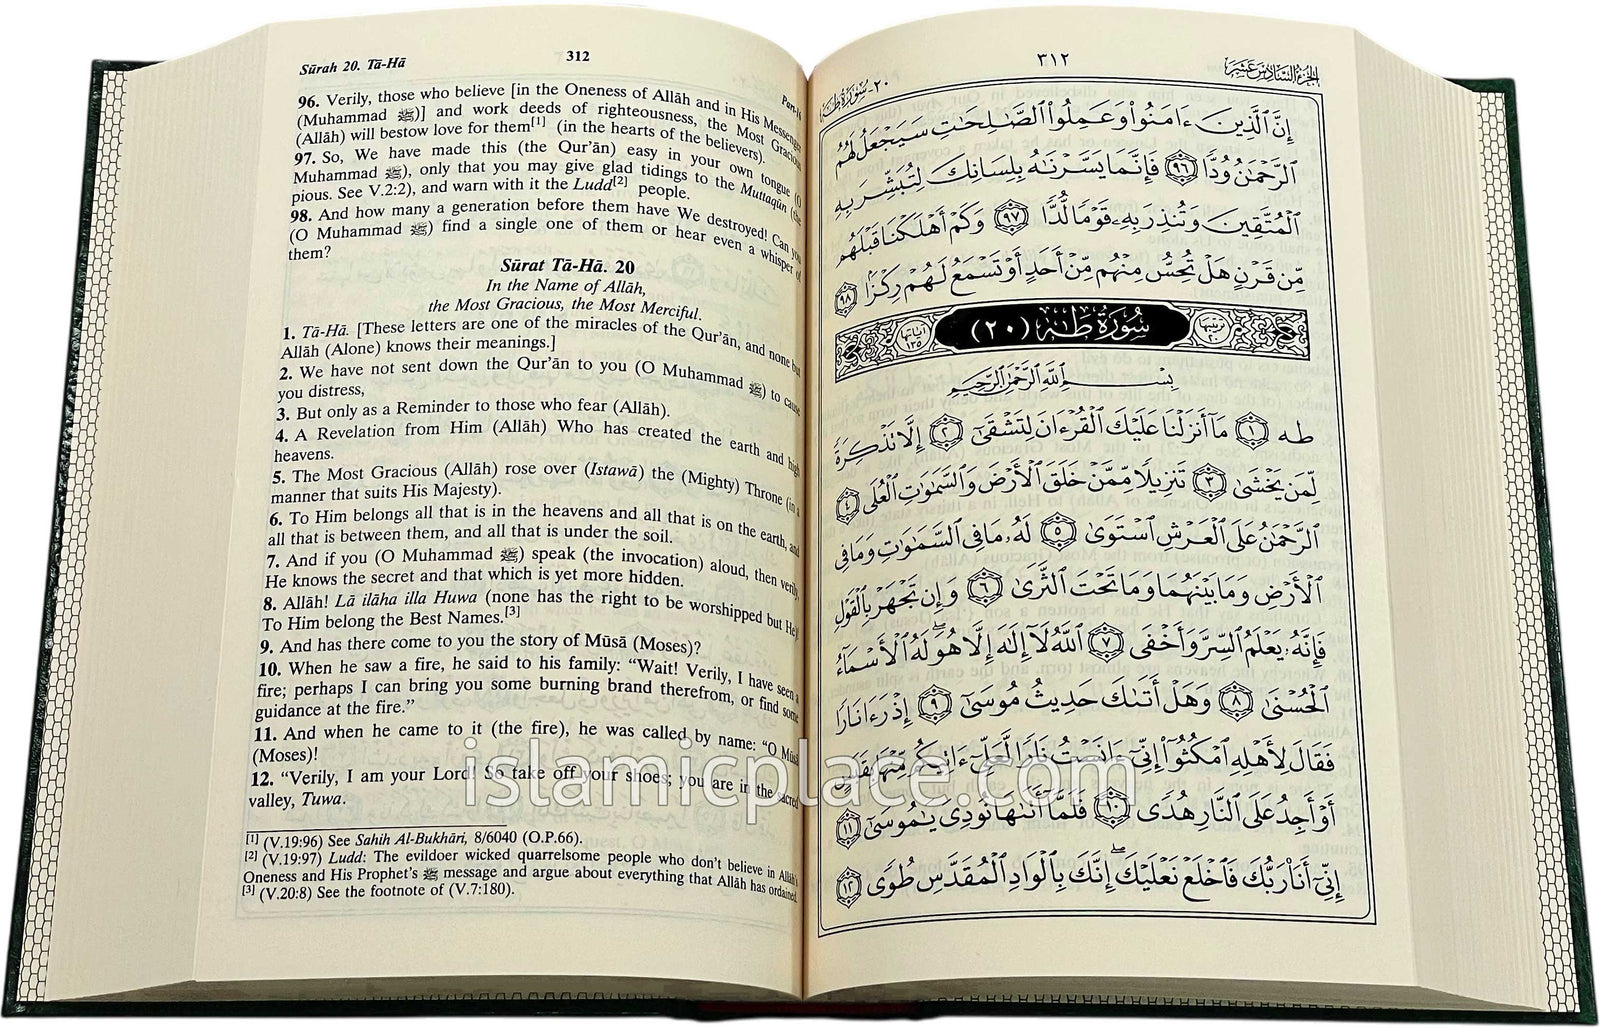 Sūrah 20. Tā-Hā
312
Part-16
96. Verily, those who believe [in the Oneness of Allāh and in His Messenger
(Muhammad ﷺ)] and work deeds of righteousness, the Most Gracious
(Allāh) will bestow love for them[1] (in the hearts of the believers).
97. So, We have made this (the Qur’ān) easy in your own tongue (O
Muhammad ﷺ), only that you may give glad tidings to the Muttaqūn (the
pious. See V.2:2), and warn with it the Ludd[2] people.
98. And how many a generation before them have We destroyed! Can you
(O Muhammad ﷺ) find a single one of them or hear even a whisper of
them?
Sūrat Tā-Hā. 20
In the Name of Allāh,
the Most Gracious, the Most Merciful.
1. Tā-Hā. [These letters are one of the miracles of the Qur’ān, and none but
Allāh (Alone) knows their meanings.]
2. We have not sent down the Qur’ān to you (O Muhammad ﷺ) to cause
you distress,
3. But only as a Reminder to those who fear (Allāh).
4. A Revelation from Him (Allāh) Who has created the earth and high
heavens.
5. The Most Gracious (Allāh) rose over (Istawā) the (Mighty) Throne (in a
manner that suits His Majesty).
6. To Him belongs all that is in the heavens and all that is on the earth, and
all that is between them, and all that is under the soil.
7. And if you (O Muhammad ﷺ) speak (the invocation) aloud, then verily,
He knows the secret and that which is yet more hidden.
8. Allāh! Lā ilāha illa Huwa (none has the right to be worshipped but He)!
To Him belong the Best Names.[3]
9. And has there come to you the story of Mūsā (Moses)?
10. When he saw a fire, he said to his family: “Wait! Verily, I have seen a
fire; perhaps I can bring you some burning brand therefrom, or find some
guidance at the fire.”
11. And when he came to it (the fire), he was called by name: “O Mūsā
(Moses)!
12. “Verily, I am your Lord! So take off your shoes; you are in the sacred
valley, Tuwa.
[1] (V.19:96) See Sahih Al-Bukhāri, 8/6040 (O.P.66).
[2] (V.19:97) Ludd: The evildoer wicked quarrelsome people who don’t believe in Allāh’s
Oneness and His Prophet’s ﷺ message and argue about everything that Allāh has ordained.
[3] (V.20:8) See the footnote of (V.7:180).
الجزء السادس عشر
٣١٢
٢٠-سورة طه
إِنَّ ٱلَّذِينَ ءَامَنُوا۟ وَعَمِلُوا۟ ٱلصَّـٰلِحَـٰتِ سَيَجْعَلُ لَهُمُ
ٱلرَّحْمَـٰنُ وُدًّا ٩٦ فَإِنَّمَا يَسَّرْنَـٰهُ بِلِسَانِكَ لِتُبَشِّرَ بِهِ
ٱلْمُتَّقِينَ وَتُنذِرَ بِهِۦ قَوْمًا لُّدًّا ٩٧ وَكَمْ أَهْلَكْنَا قَبْلَهُم
مِّن قَرْنٍ هَلْ تُحِسُّ مِنْهُم مِّنْ أَحَدٍ أَوْ تَسْمَعُ لَهُمْ رِكْزًا ٩٨
ترتيبها ٢٠
سُورَةُ طه (٢٠)
آياتها ١٣٥
بِسْمِ ٱللَّهِ ٱلرَّحْمَـٰنِ ٱلرَّحِيمِ
طه ١ مَآ أَنزَلْنَا عَلَيْكَ ٱلْقُرْءَانَ لِتَشْقَىٰٓ ٢ إِلَّا تَذْكِرَةً
لِّمَن يَخْشَىٰ ٣ تَنزِيلًا مِّمَّنْ خَلَقَ ٱلْأَرْضَ وَٱلسَّمَـٰوَٰتِ ٱلْعُلَى ٤
ٱلرَّحْمَـٰنُ عَلَى ٱلْعَرْشِ ٱسْتَوَىٰ ٥ لَهُۥ مَا فِى ٱلسَّمَـٰوَٰتِ وَمَا فِى
ٱلْأَرْضِ وَمَا بَيْنَهُمَا وَمَا تَحْتَ ٱلثَّرَىٰ ٦ وَإِن تَجْهَرْ بِٱلْقَوْلِ
فَإِنَّهُۥ يَعْلَمُ ٱلسِّرَّ وَأَخْفَى ٧ ٱللَّهُ لَآ إِلَـٰهَ إِلَّا هُوَ ۖ لَهُ ٱلْأَسْمَآءُ
ٱلْحُسْنَىٰ ٨ وَهَلْ أَتَىٰكَ حَدِيثُ مُوسَىٰٓ ٩ إِذْ رَءَا نَارًا
فَقَالَ لِأَهْلِهِ ٱمْكُثُوٓا۟ إِنِّىٓ ءَانَسْتُ نَارًا لَّعَلِّىٓ ءَاتِيكُم مِّنْهَا بِقَبَسٍ
أَوْ أَجِدُ عَلَى ٱلنَّارِ هُدًى ١٠ فَلَمَّآ أَتَىٰهَا نُودِىَ يَـٰمُوسَىٰٓ ١١
إِنِّىٓ أَنَا۠ رَبُّكَ فَٱخْلَعْ نَعْلَيْكَ ۖ إِنَّكَ بِٱلْوَادِ ٱلْمُقَدَّسِ طُوًى ١٢
islamicplace.com